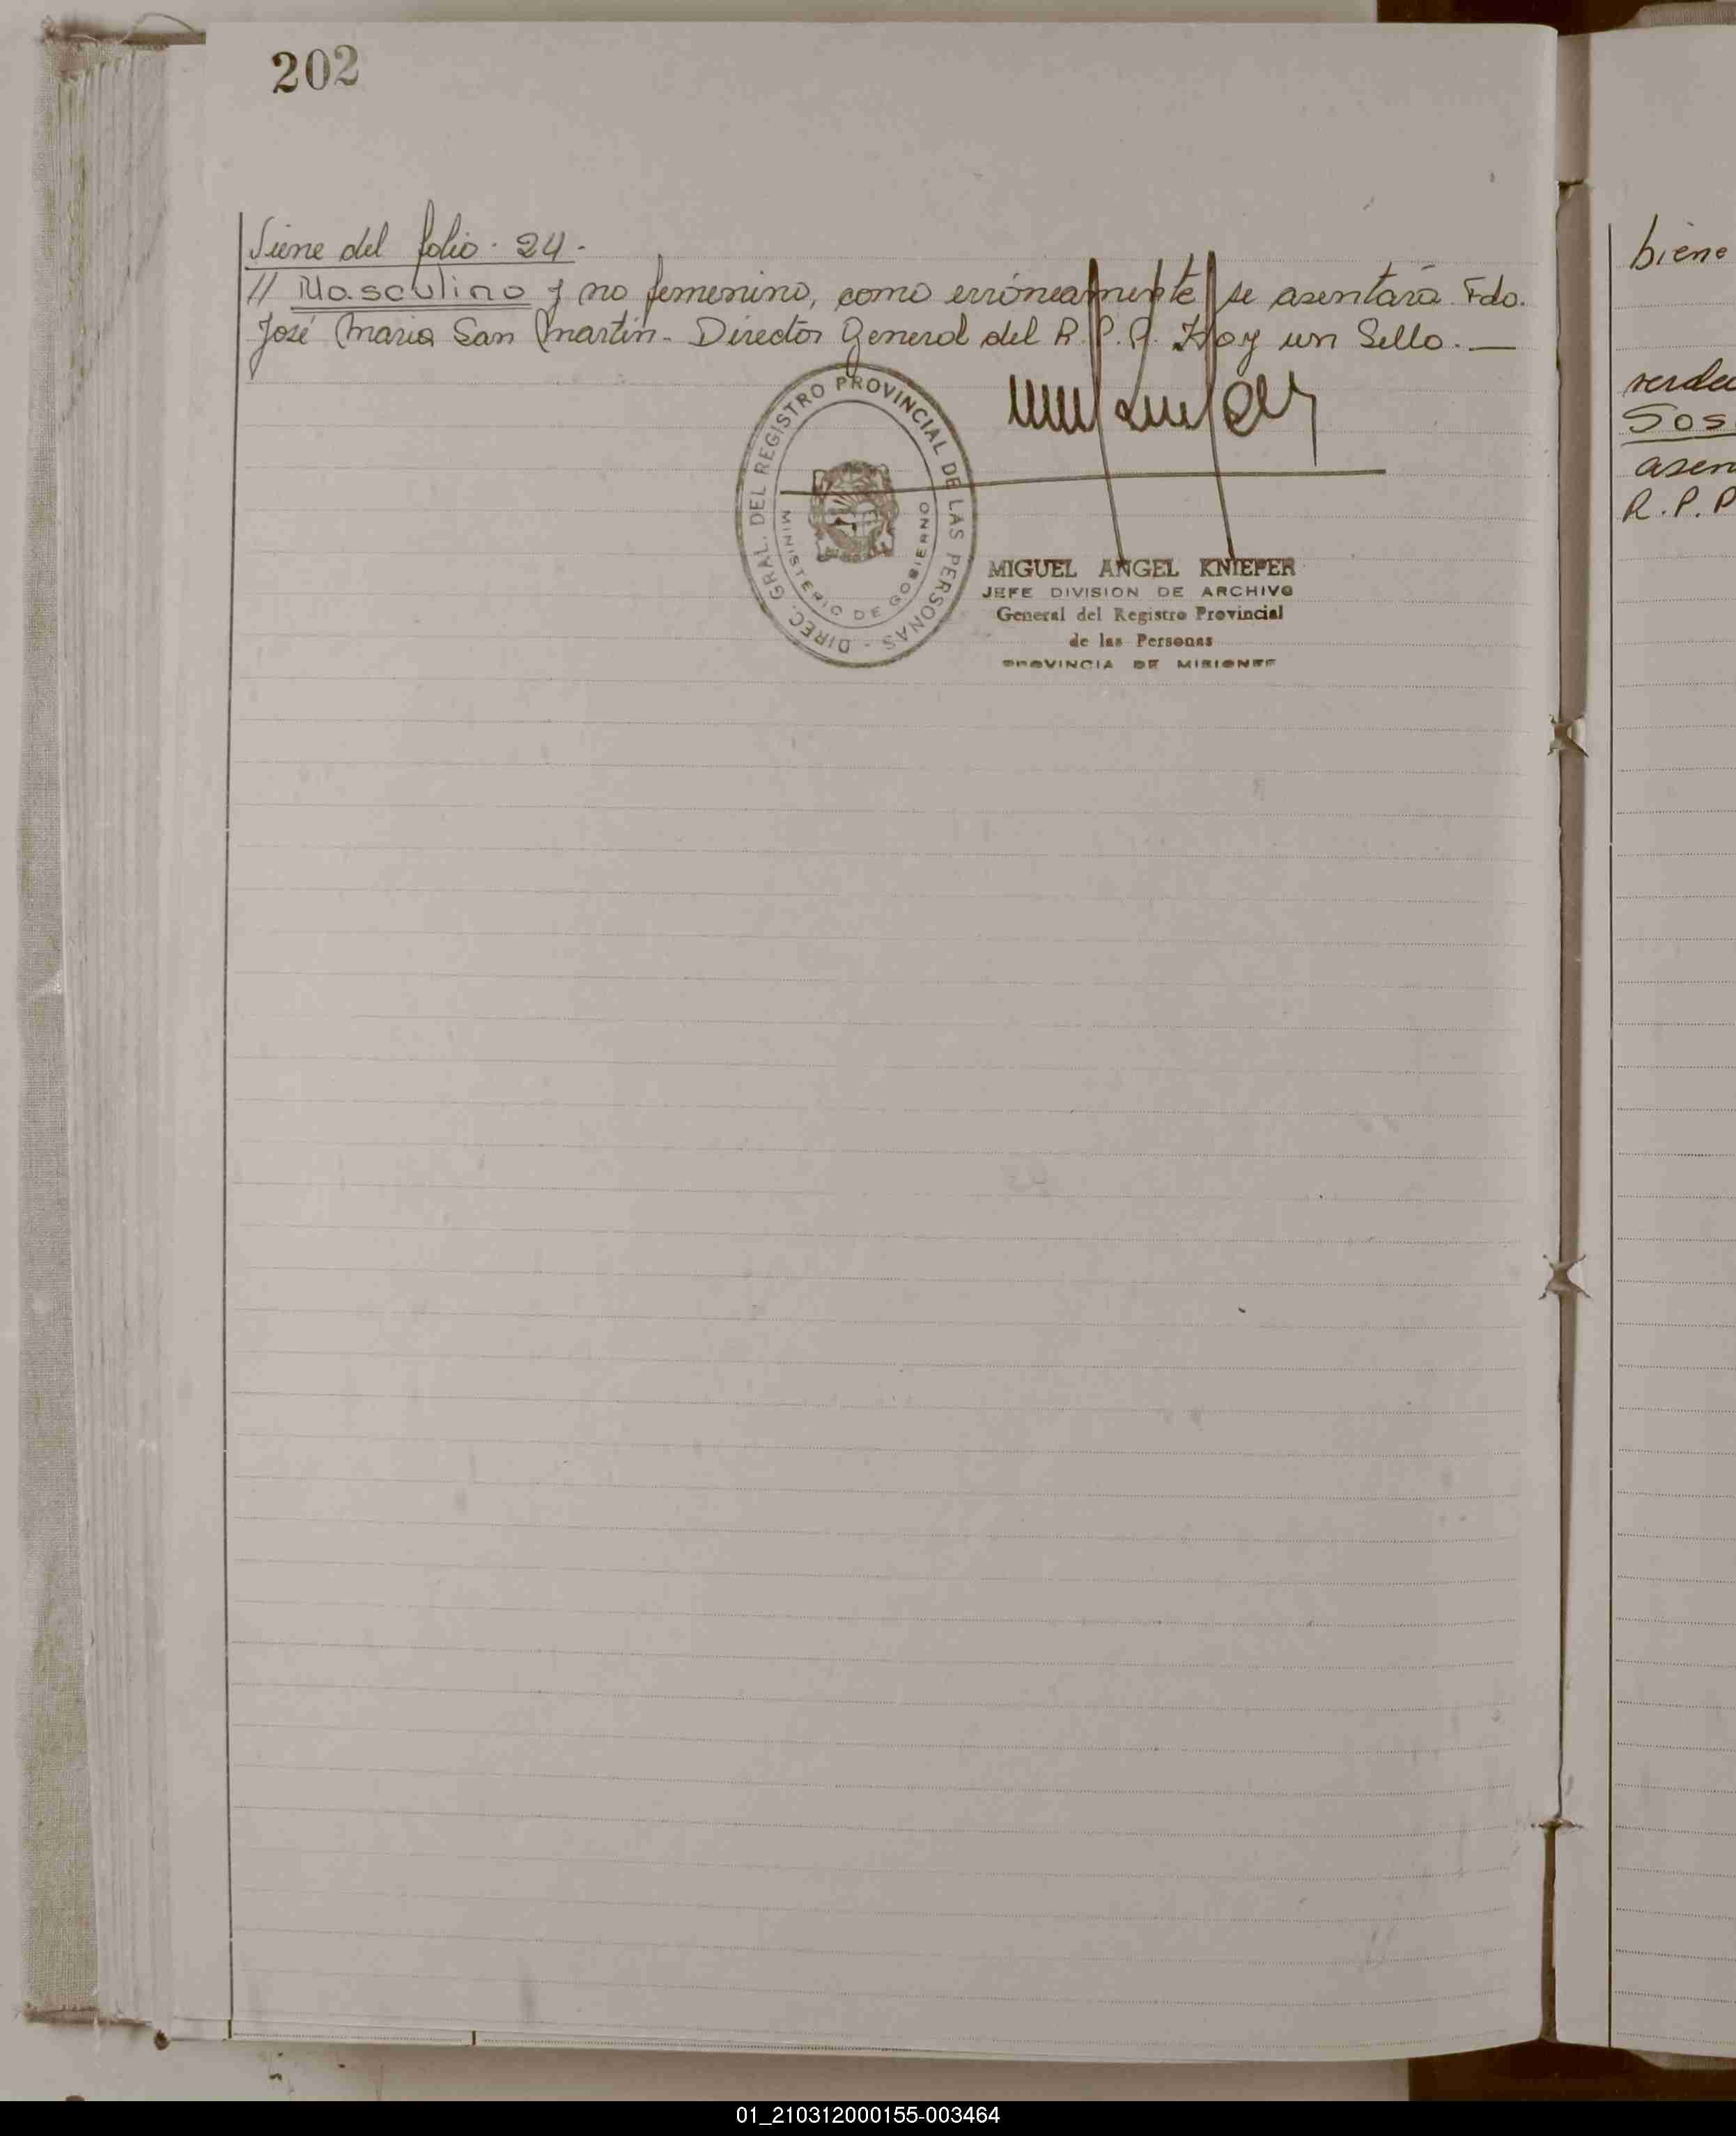 202
Viene del folio. 24.
// Masculino y no femenino, como erróneamente se asentara. Fdo.
José Maria San Martin. Director General del R.P.P. Hay un Sello. —
DIREC. GRAL. DEL REGISTRO PROVINCIAL DE LAS PERSONAS -
MINISTERIO DE GOBIERNO
MIGUEL ANGEL KNIEFER
JEFE DIVISION DE ARCHIVO
General del Registro Provincial
de las Personas
PROVINCIA DE MISIONES
biene
verda
Sos
asen
R.P.P
01_210312000155-003464